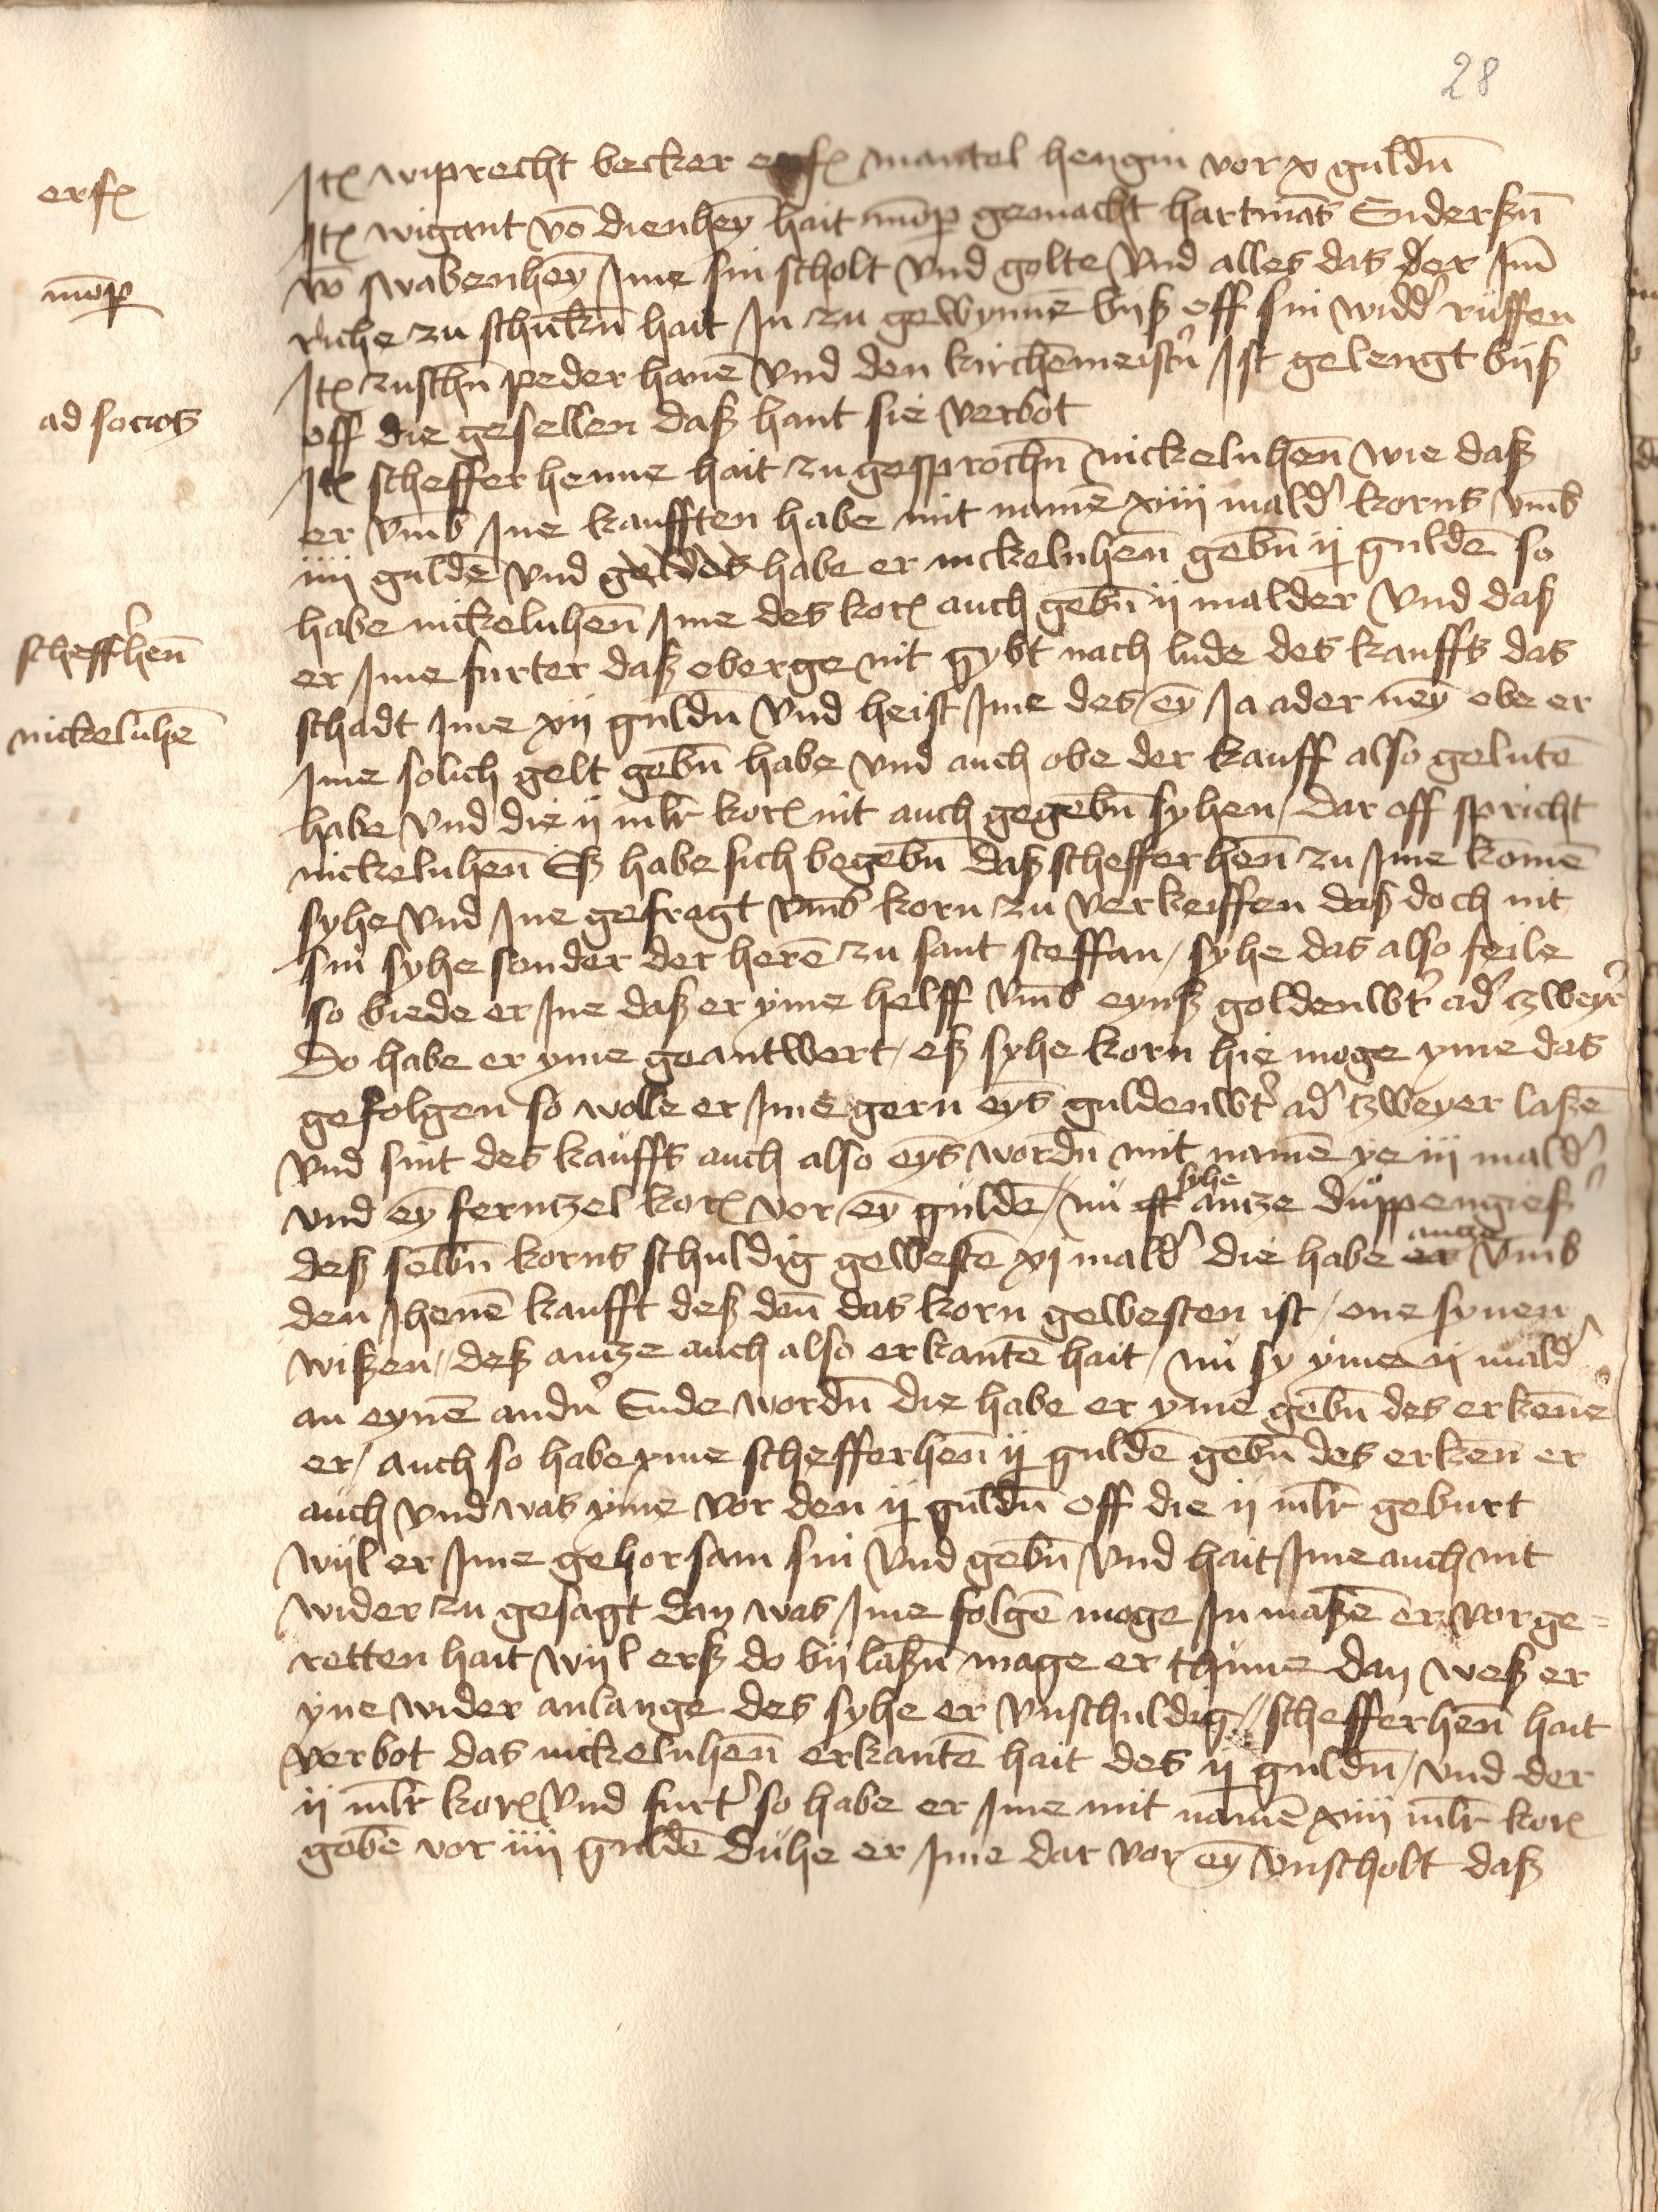 28
erf
Itē wiprecht becker erf mantel hengin vor x guldn̄
Itē wigant vō dienheȳ hait mōp gemacht hartmās Endersūn
mōp
vō swabenheȳ Ime sin scholt vnd golte vnd alles das der Im̄
riche zu schickn̄ hait In zu gewynnē bijß off sin widd' ruffen
Itē zuschn̄ peder hanē vnd den kirchēmeistn̄ Ist gelengt bijß
ad socios
off die gesellen daß hant sie verbot
Itē scheffer henne hait zu gesprochn̄ nickeluhen̄ wie daß
er vmb Ine kaufften habe mit namē xiiij mald' korns vmb
iiij guldē vnd geldes habe er nickeluhen̄ gebn̄ ij guldē so
habe nickeluhen̄ Ime des korn auch gebn̄ ij malder vnd daß
scheff'hen̄
er Ime furter daß oberge nit gybt nach lude des kauffs das
nickeluhē
schadt Ime xij guldn̄ vnd heist Ime des eȳ Ja ader neȳ obe er
Ime solich gelt gebn̄ habe vnd auch obe der kauff also gelutē
habe vnd die ij ml̄r korn nit auch gegebn̄ syhen / dar off spricht
nickeluhen̄ Eß habe sich begebn̄ daß schefferhen̄ zu Ime komē
syhe vnd Ine gefragt vmb korn zu verkeiffen daß doch nit
sin syhe sonder der herē zu sant steffan / syhe das also feile
so biede er Ine daß er yme helff vmb eynß goldenwt' ad' zweyer
Do habe er yme geantwert / eß syhe korn hie moge yme das
gefolgen so wolle er Ime gern eys guldenwt' ad' tzweyer laßē
vnd sint des kauffs auch also eys wordn̄ mit namē ye iij mald'
vnd eȳ ferntzel korn vor eȳ guldē / nū ist syhe antze duppengieß'
deß selbn̄ korns schuldig gewestē xj mald' die habe er antze vmb
den Jhenē kaufft deß dan̄ das korn gewesten ist / one synen
wißen / deß antze auch also erkantē hait / nū sy yme ij mald'
an eynē andn̄ Ende wordn̄ die habe er yme gebn̄ des erkenē
er / auch so habe yme schefferhen̄ ij guldē gebn̄ des erken̄ er
auch vnd was yme vor den ij guldn̄ off die ij ml̄r geburt
wijl er Ime gehorsam sin vnd gebn̄ vnd hait Ime auch nit
wider zu gesagt dan was Ime folgē moge In maßē er vor ge=
retten hait wijl erß do bij laßn̄ mage er thune dan weß er
yne wider anlange des syhe er vnschuldig // schefferhen̄ hait
verbot das nickeluhen̄ erkantē hait des ij guldn̄ / vnd der
ij ml̄r korn vnd furt' so habe er Ime mit namē xiiij ml̄r korn
gebē vor iiij guldē Duhe er Ime dar vor eȳ vnscholt daß